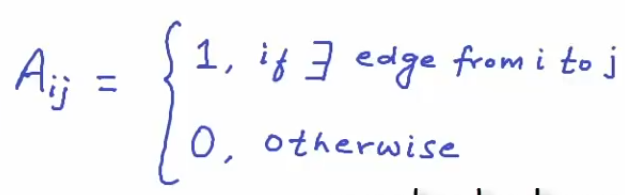 A_{ij} = { 1, if ∃ edge from i to j
0, otherwise